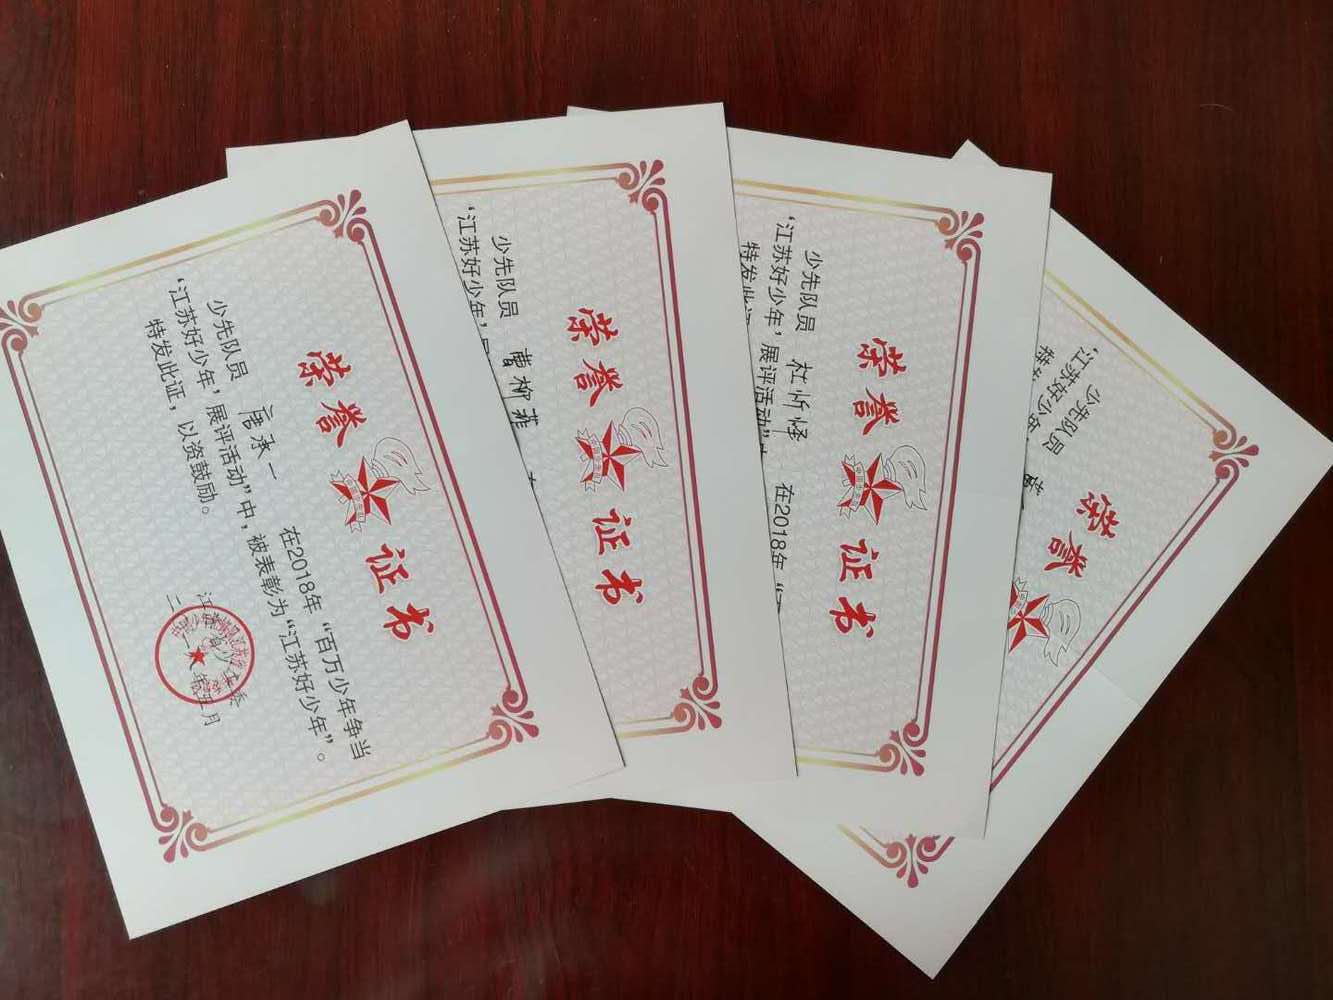 荣誉证书
少先队员 唐承一 在2018年“百万少年争当
‘江苏好少年’展评活动”中,被表彰为“江苏好少年”。
特发此证,以资鼓励。
江苏省少工委
二〇一八年五月
荣誉证书
少先队员 曹柳菲
‘江苏好少年’
荣誉证书
少先队员 杜忻怿 在2018年“
‘江苏好少年’展评活动”
特发此证
荣誉
少先队员
‘江苏好少年’